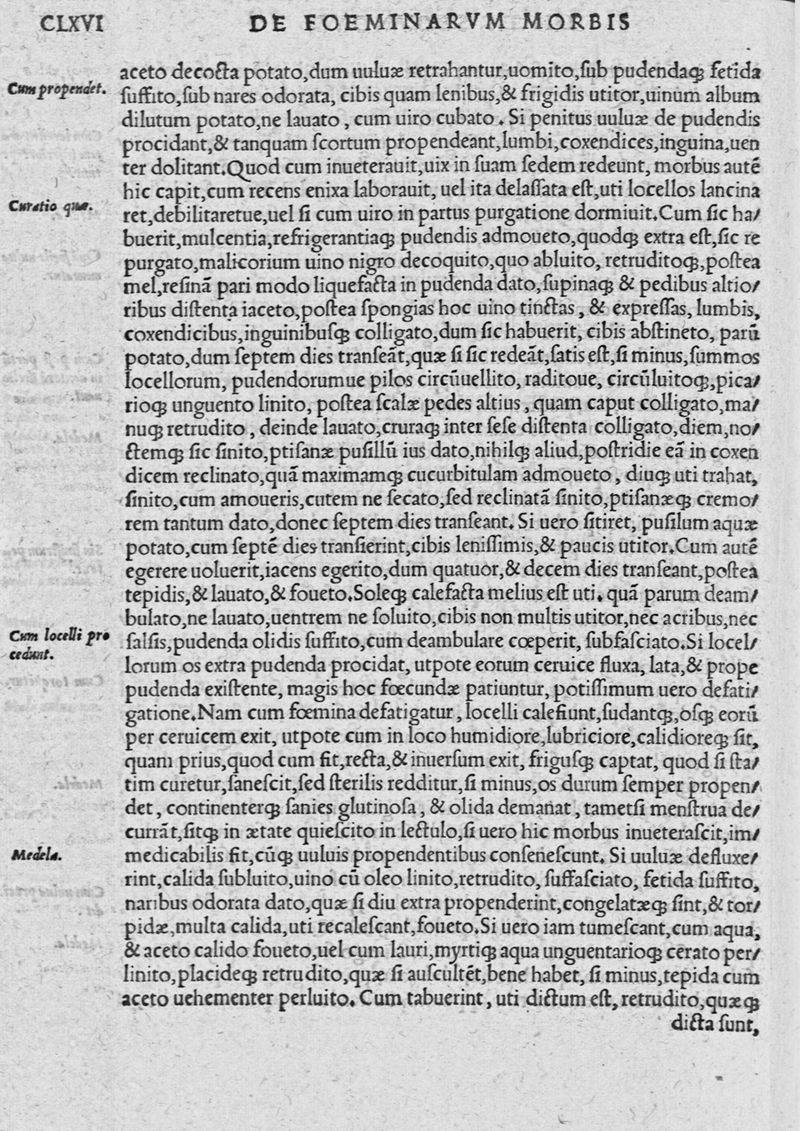 CLXVI DE FOEMINARVM MORBIS
aceto decocta potato,dum uuluæ retrahantur,uomito,ſub pudendaqꝫ fetida
Cum propendet.
ſuffito,ſub nares odorata, cibis quam lenibus,& frigidis utitor,uinum album
dilutum potato,ne lauato, cum uiro cubato. Si penitus uuluæ de pudendis
procidant,& tanquam ſcortum propendeant,lumbi,coxendices,inguina,uen
ter dolitant.Quod cum inueterauit,uix in ſuam ſedem redeunt, morbus autē
hic capit,cum recens enixa laborauit, uel ita delaſſata eſt,uti locellos lancina
Curatio quæ.
ret,debilitaretue,uel ſi cum uiro in partus purgatione dormiuit.Cum ſic ha/
buerit,mulcentia,refrigerantiaqꝫ pudendis admoueto,quodqꝫ extra eſt,ſic re
purgato,malicorium uino nigro decoquito,quo abluito, retruditoqꝫ,poſtea
mel,reſinā pari modo liquefacta in pudenda dato,ſupinaqꝫ & pedibus altio/
ribus diſtenta iaceto,poſtea ſpongias hoc uino tinctas, & expreſſas, lumbis,
coxendicibus,inguinibuſqꝫ colligato,dum ſic habuerit, cibis abſtineto, parū
potato,dum ſeptem dies tranſeāt,quæ ſi ſic redeāt,ſatis eſt,ſi minus,ſummos
locellorum, pudendorumue pilos circūuellito, raditoue, circūluitoqꝫ,pica/
rioqꝫ unguento linito, poſtea ſcalæ pedes altius, quam caput colligato,ma/
nuqꝫ retrudito, deinde lauato,cruraqꝫ inter ſeſe diſtenta colligato,diem,no/
ctemqꝫ ſic ſinito,ptiſanæ puſillū ius dato,nihilqꝫ aliud,poſtridie eā in coxen
dicem reclinato,quā maximamqꝫ cucurbitulam admoueto, diuqꝫ uti trahat,
ſinito,cum amoueris,cutem ne ſecato,ſed reclinatā ſinito,ptiſanæqꝫ cremo/
rem tantum dato,donec ſeptem dies tranſeant. Si uero ſitiret, puſilum aquæ
potato,cum ſeptē dies tranſierint,cibis leniſſimis,& paucis utitor.Cum autē
egerere uoluerit,iacens egerito,dum quatuor,& decem dies tranſeant,poſtea
tepidis,& lauato,& foueto.Soleqꝫ calefacta melius eſt uti. quā parum deam/
bulato,ne lauato,uentrem ne ſoluito,cibis non multis utitor,nec acribus,nec
Cum locelli pro
cedunt.
ſalſis,pudenda olidis ſuffito,cum deambulare cœperit, ſubfaſciato.Si locel/
lorum os extra pudenda procidat, utpote eorum ceruice fluxa, lata,& prope
pudenda exiſtente, magis hoc fœcundæ patiuntur, potiſſimum uero defati/
gatione.Nam cum fœmina defatigatur, locelli calefiunt,ſudantqꝫ,oſqꝫ eorū
per ceruicem exit, utpote cum in loco humidiore,lubriciore,calidioreqꝫ ſit,
quam prius,quod cum fit,recta,& inuerſum exit, friguſqꝫ captat, quod ſi ſta/
tim curetur,ſaneſcit,ſed ſterilis redditur,ſi minus,os durum ſemper propen/
det, continenterqꝫ ſanies glutinoſa, & olida demanat, tametſi menſtrua de/
currāt,ſitqꝫ in ætate quieſcito in lectulo,ſi uero hic morbus inueteraſcit,im/
Medela.
medicabilis fit,cūqꝫ uuluis propendentibus conſeneſcunt. Si uuluæ defluxe/
rint,calida ſubluito,uino cū oleo linito,retrudito, ſuffaſciato, fetida ſuffito,
naribus odorata dato,quæ ſi diu extra propenderint,congelatæqꝫ ſint,& tor/
pidæ,multa calida,uti recaleſcant,foueto.Si uero iam tumeſcant,cum aqua,
& aceto calido foueto,uel cum lauri,myrtiqꝫ aqua unguentarioqꝫ cerato per/
linito,placideqꝫ retrudito,quæ ſi auſcultēt,bene habet, ſi minus,tepida cum
aceto uehementer perluito. Cum tabuerint, uti dictum eſt, retrudito,quæqꝫ
dicta ſunt,